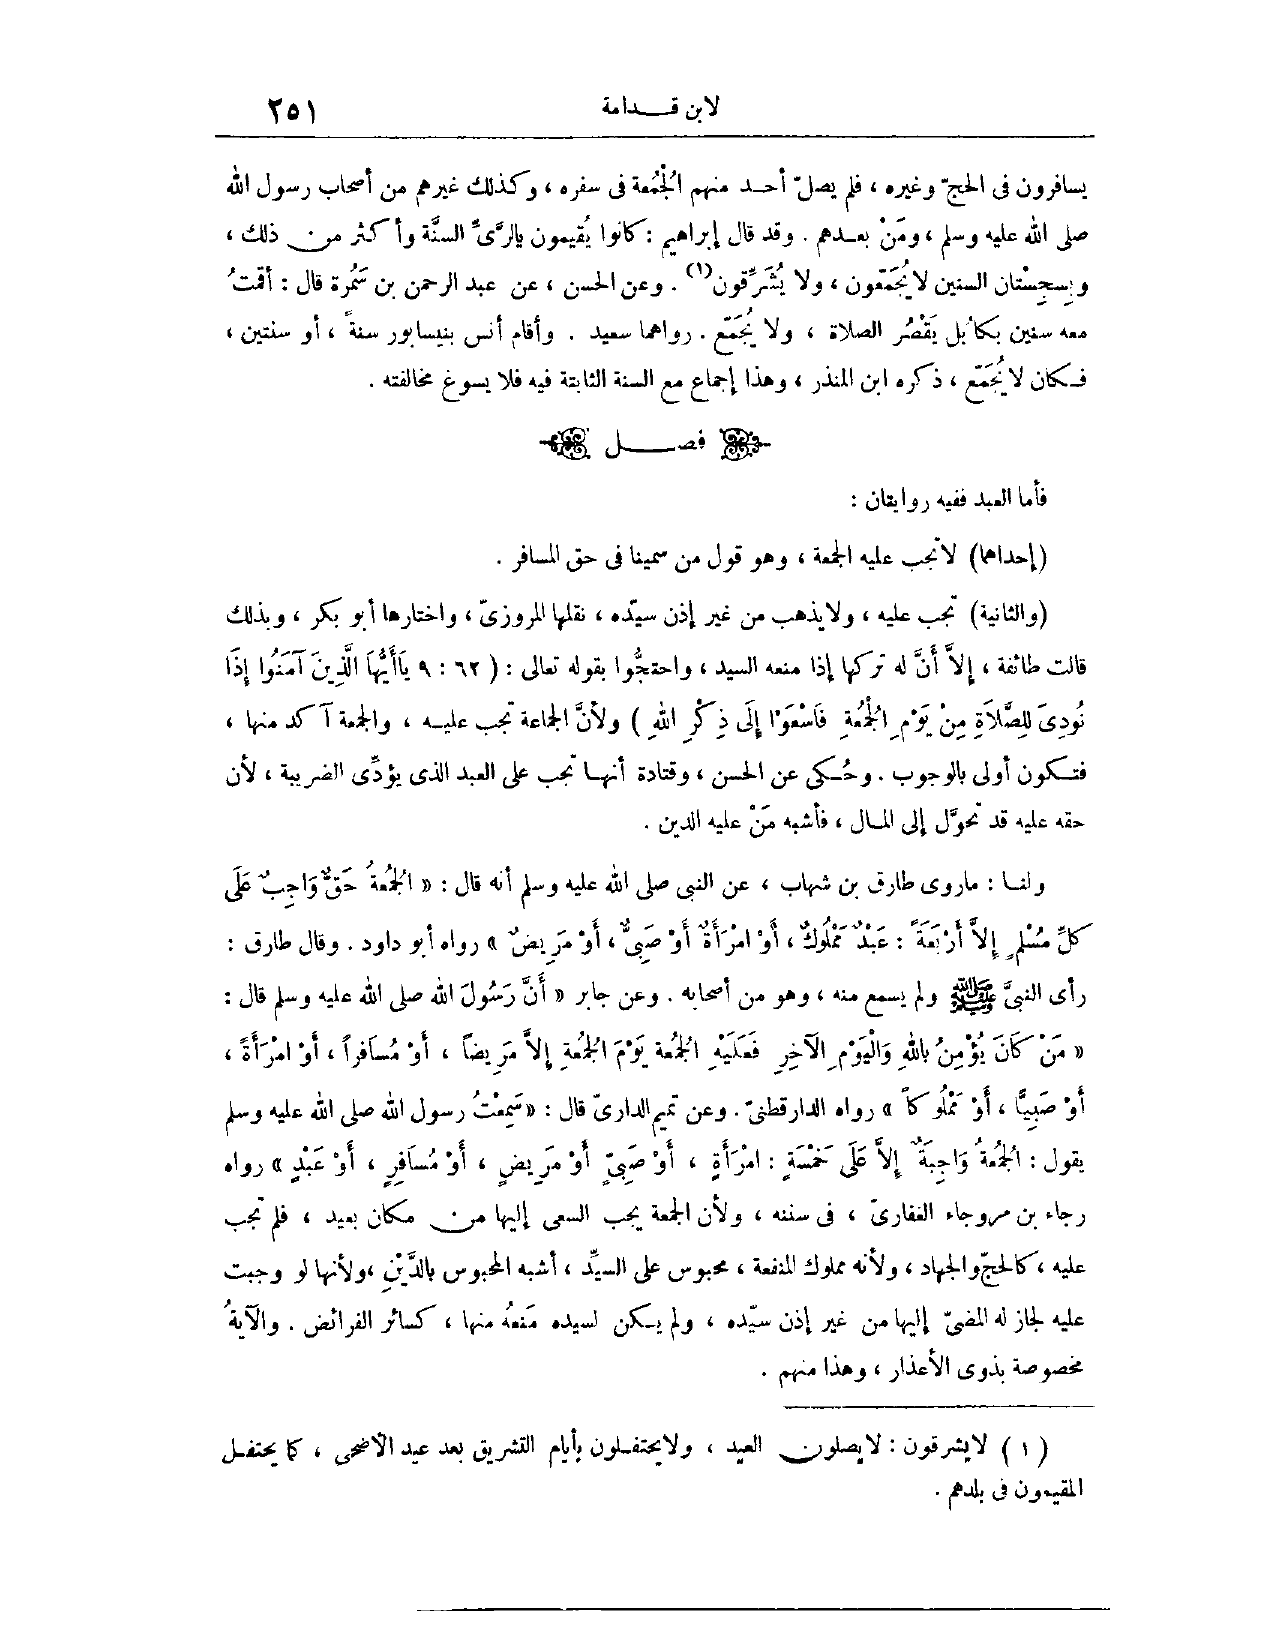 لابن قـــدامة ٢٥١
يسافرون فى الحجّ وغيره ، فلم يصلّ أحـد منهم الجُمُعة فى سفره ، وكذلك غيرهم من أصحاب رسول الله
صلى الله عليه وسلم ، ومَنْ بعـدهم . وقد قال إبراهيم : كانوا يُقيمون بالرَّىِّ السنَّة وأكثر من ذلك ،
وبِسِجِسْتان السنين لا يُجَمِّعون ، ولا يُشَرِّقون(١) . وعن الحسن ، عن عبد الرحمن بن سَمُرة قال : أقمتُ
معه سنين بكابُل يَقْصُر الصلاة ، ولا يُجَمِّع . رواهما سعيد . وأقام أنس بنيسابور سنةً ، أو سنتين ،
فـكان لا يُجَمِّع ، ذكره ابن المنذر ، وهذا إجماع مع السنة الثابتة فيه فلا يسوغ مخالفته .
فصـــل
فأما العبد ففيه روايتان :
(إحداها) لا تجب عليه الجمعة ، وهو قول من سمينا فى حق المسافر .
(والثانية) تجب عليه ، ولا يذهب من غير إذن سيّده ، نقلها المروزىّ ، واختارها أبو بكر ، وبذلك
قالت طائفة ، إلاَّ أنَّ له تركها إذا منعه السيد ، واحتجُّوا بقوله تعالى : ( ٦٢ : ٩ يَاأَيُّهَا الَّذِينَ آمَنُوا إذَا
نُودِىَ لِلصَّلاَةِ مِنْ يَوْمِ الْجُمُعَةِ فَاسْعَوْا إلَى ذِكْرِ اللهِ ) ولأنَّ الجماعة تجب عليـه ، والجمعة آكد منها ،
فتـكون أولى بالوجوب . وحُـكى عن الحسن ، وقتادة أنهـا تجب على العبد الذى يؤدِّى الضريبة ، لأن
حقه عليه قد تحوَّل إلى المـال ، فأشبه مَنْ عليه الدين .
ولنـا : ماروى طارق بن شهاب ، عن النبى صلى الله عليه وسلم أنه قال : « الجُمُعةُ حَقٌّ وَاجِبٌ عَلَى
كلِّ مُسْلِمٍ إلاَّ أَرْبَعَةً : عَبْدٌ مَمْلُوكٌ ، أَوْ امْرَأَةٌ أَوْ صَبِىٌّ ، أَوْ مَرِيضٌ » رواه أبو داود . وقال طارق :
رأى النبىَّ ﷺ ولم يسمع منه ، وهو من أصحابه . وعن جابر « أنَّ رَسُولَ الله صلى الله عليه وسلم قال :
« مَنْ كَانَ يُؤْمِنُ بِاللهِ وَالْيَوْمِ الآخِرِ فَعَلَيْهِ الجُمُعة يَوْمَ الجُمُعةِ إلاَّ مَرِيضاً ، أَوْ مُسَافِراً ، أَوْ امْرَأَةً ،
أَوْ صَبِيًّا ، أَوْ مَمْلُوكاً » رواه الدارقطنىّ . وعن تميم الدارىّ قال : «سَمِعْتُ رسول الله صلى الله عليه وسلم
يقول : الجُمُعةُ وَاجِبَةٌ إلاَّ عَلَى خَمْسَةٍ : امْرَأَةٍ ، أَوْ صَبِىّ أَوْ مَرِيضٍ ، أَوْ مُسَافِرٍ ، أَوْ عَبْدٍ » رواه
رجاء بن مروجاء الغفارىّ ، فى سننه ، ولأن الجمعة يجب السعى إليها من مكان بعيد ، فلم تجب
عليه ، كالحجّ والجهاد ، ولأنه مملوك المنفعة ، محبوس على السيِّد ، أشبه المحبوس بالدَّيْنِ ،ولأنها لو وجبت
عليه لجاز له المضىّ إليها من غير إذن سيّده ، ولم يـكن لسيده مَنعهُ منها ، كسائر الفرائض . والآيةُ
مخصوصة بذوى الأعذار ، وهذا منهم .
( ١ ) لايشرقون : لايصلون العيد ، ولايحتفـلون بأيام التشريق بعد عيد الأضحى ، كما يحتفـل
المقيمون فى بلدهم .